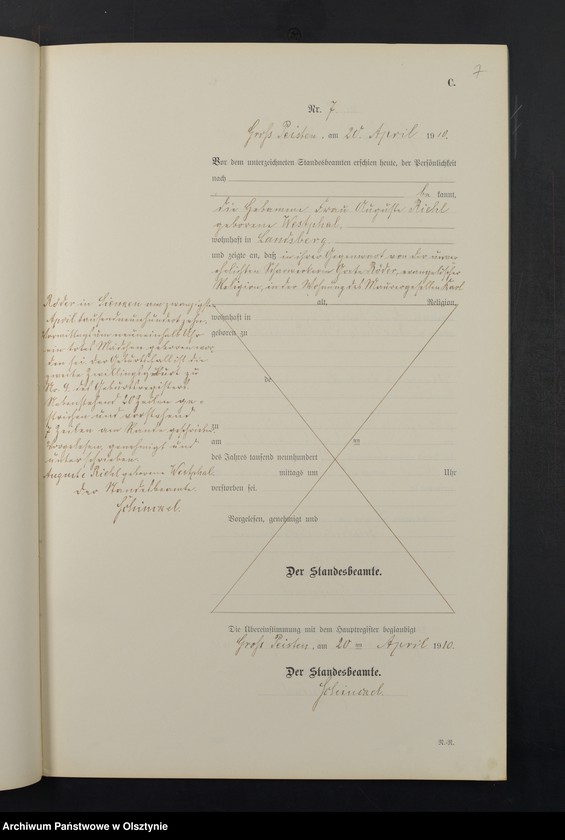 7
C.
Nr. 7.
Gross Peisten, am 20 April 1910.
Vor dem unterzeichneten Standesbeamten erschien heute, der Persönlichkeit
nach
be kannt,
die Hebamme Frau Auguste Riehl
geborene Westphal,
wohnhaft in Landsberg
und zeigte an, daß in ihrer Gegenwart von der unver-
ehelichten Grete Röder, evangelischer
Religion, in der Wohnung des Maurergesellen Karl
Röder in Sienken am zwanzigsten
April tausendneunhundertzehn,
Vormittags um neuneinhalb Uhr
ein totes Mädchen geboren wor-
den sei. Der Geburtsfall ist die
zweite Zwillingsgeburt zu
No. 9. des Geburtsregisters
Nebenstehend 20 Zeilen ge-
strichen und vorstehend
7 Zeilen am Rande geschrieben
Vorgelesen, genehmigt und
unterschrieben
Auguste Riehl geborene Westphal.
Der Standesbeamte.
Schinkel.
alt, Religion,
wohnhaft in
geboren zu
de
zu
am ten
des Jahres tausend neunhundert
mittags um Uhr
verstorben sei.
Vorgelesen, genehmigt und
Der Standesbeamte.
Die Übereinstimmung mit dem Hauptregister beglaubigt
Gross Peisten, am 20 ten April 1910.
Der Standesbeamte.
Schinkel
N.-R.
Archiwum Państwowe w Olsztynie